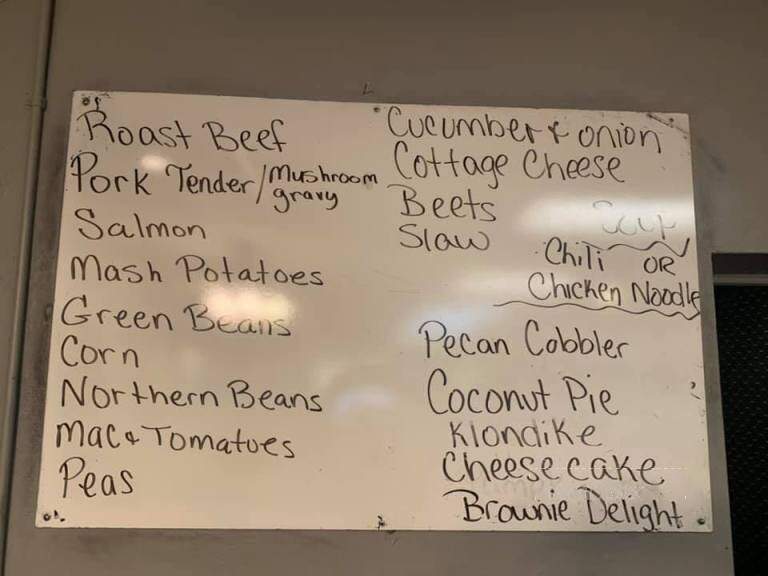 Roast Beef
Pork Tender/Mushroom gravy
Salmon
Mash Potatoes
Green Beans
Corn
Northern Beans
Mac & Tomatoes
Peas
Cucumber & onion
Cottage Cheese
Beets
Slaw
Soup
Chili OR
Chicken Noodle
Pecan Cobbler
Coconut Pie
Klondike
Cheese cake
Brownie Delight